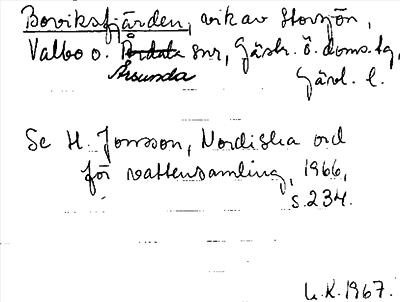 Boviksfjärden, vik av Storsjön,
Valbo o. snr, Gästr. ö. doms. tg,
Årsunda
Gävl. l.
Se H. Jonsson, Nordiska ord
för vattensamling, 1966,
s. 234.
L.K. 1967.